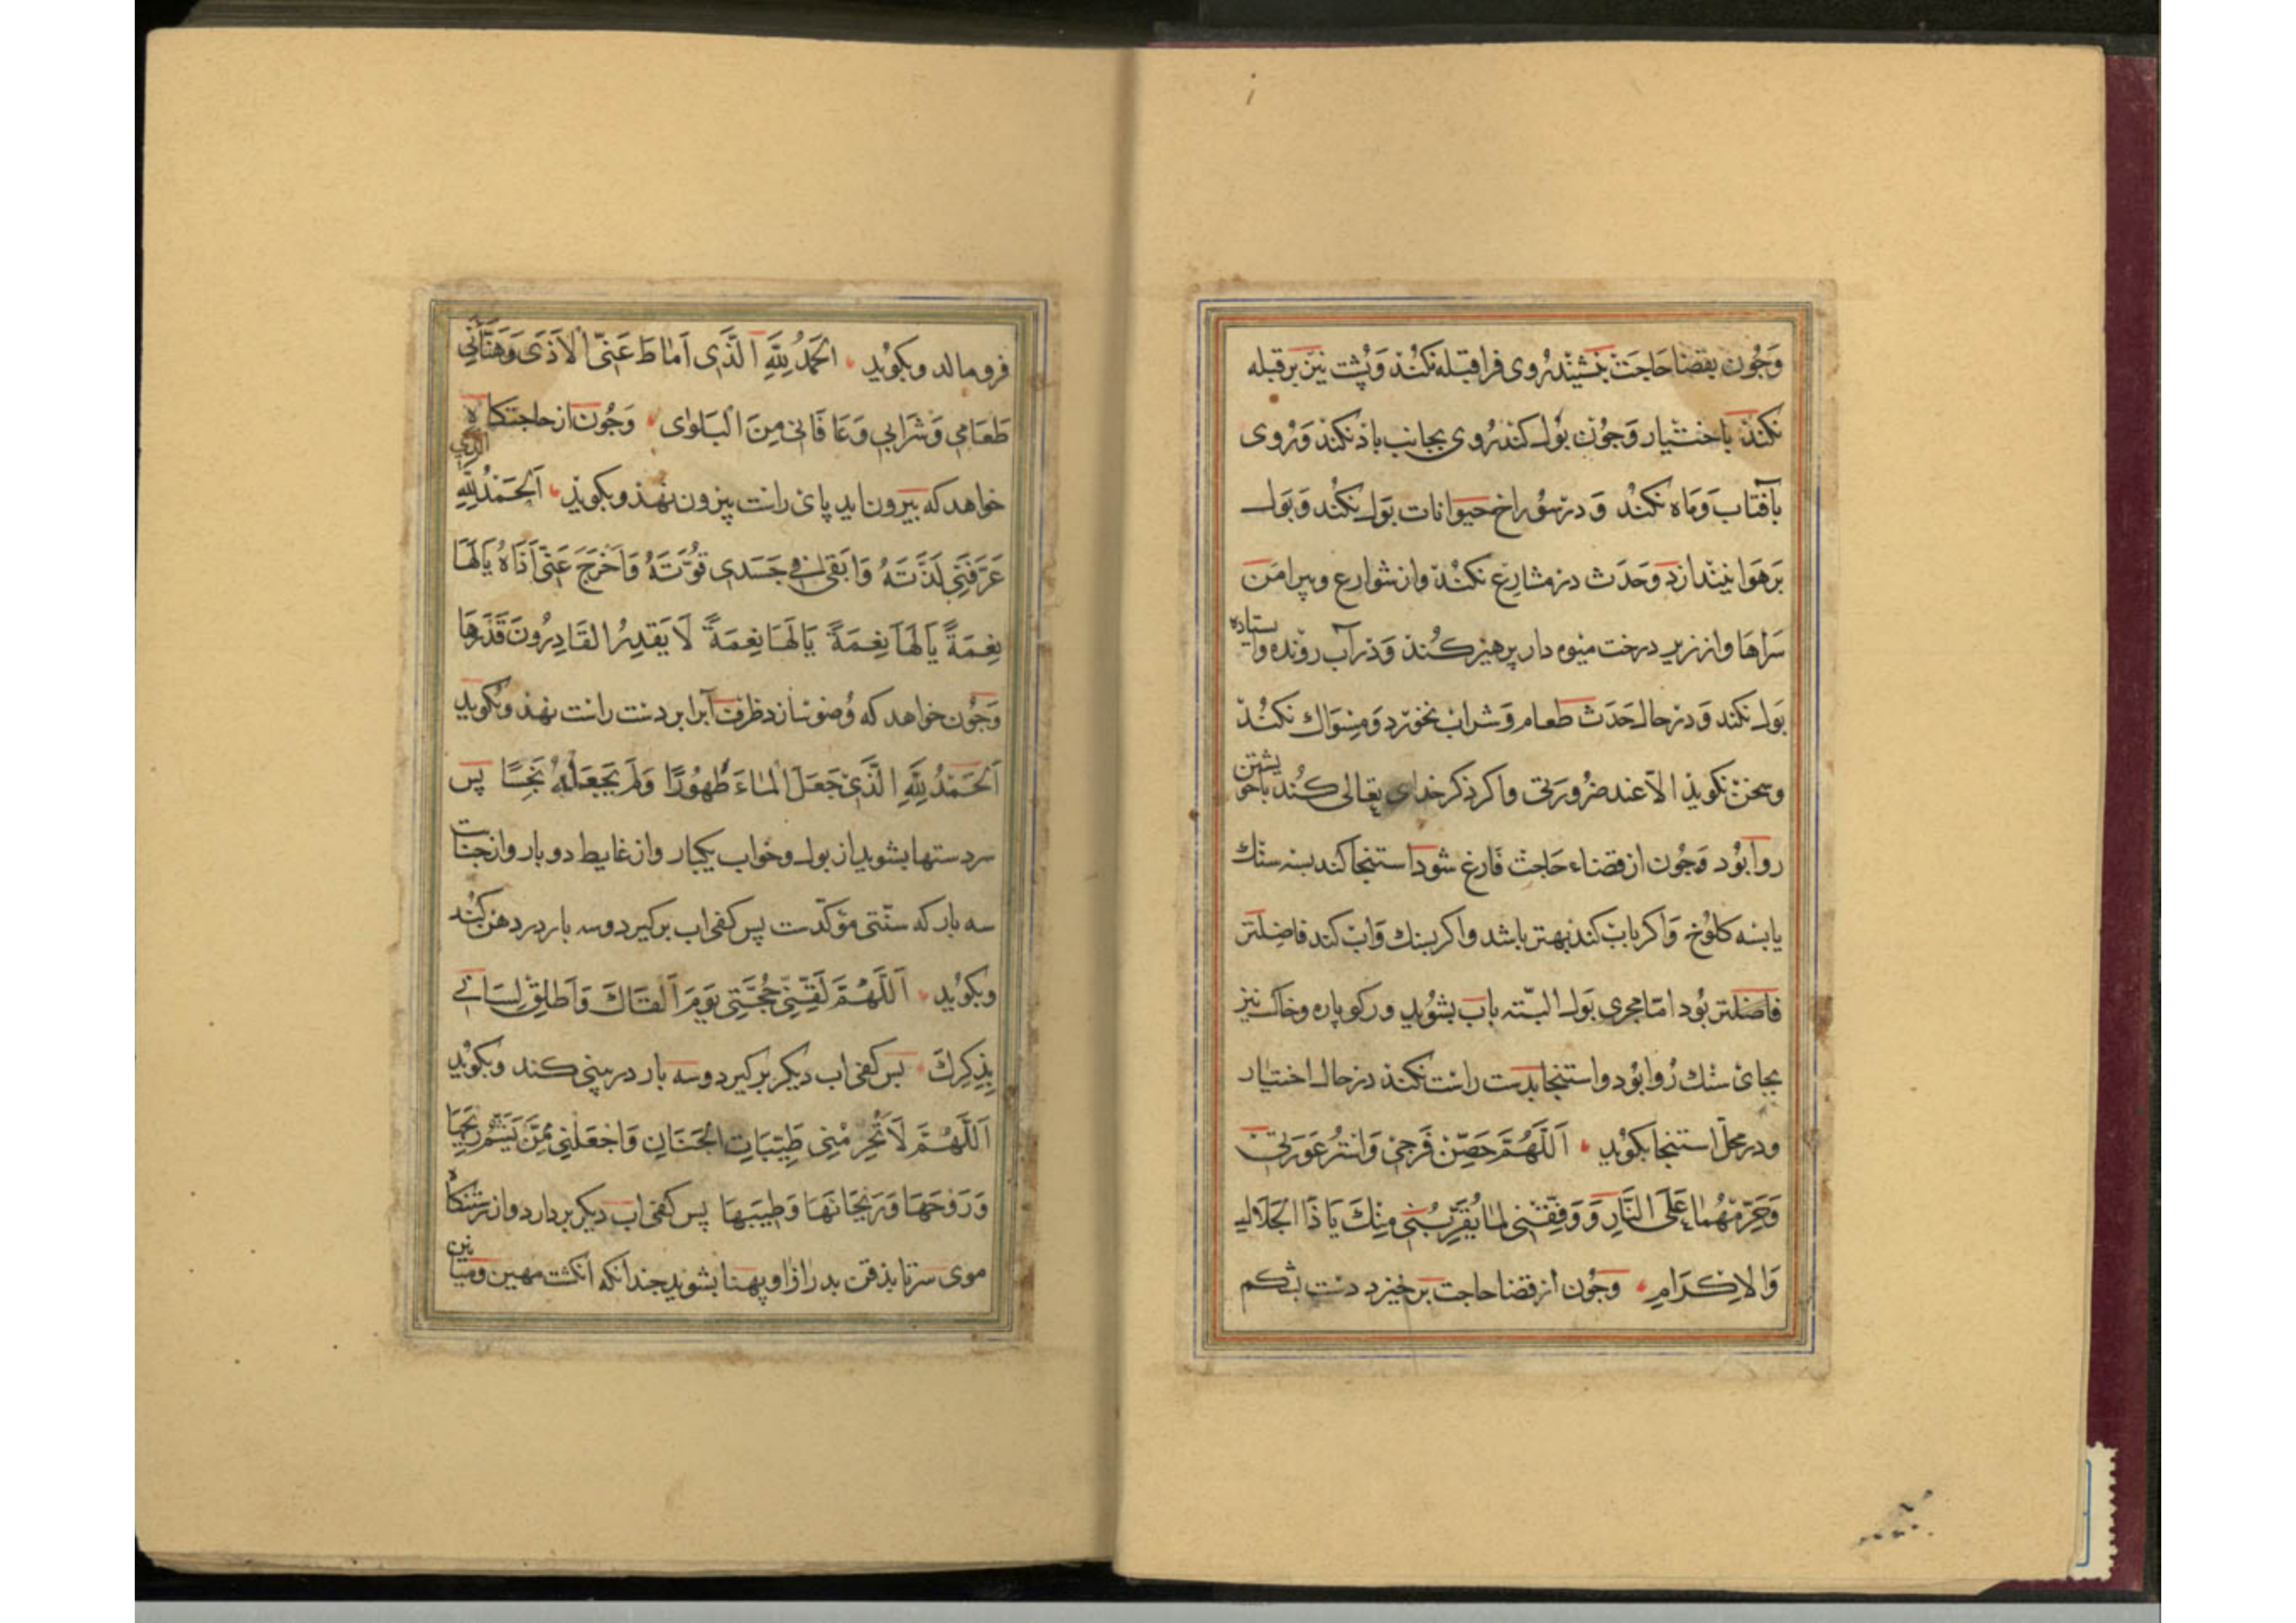 وَجُون بقضا حاجَت بنشیند رُوی فرا قبله نکُند وَپُشت نیز بر قبله
نکند باختیار وَجُون بَول کند رُوی بجانب باذ نکند وَرُوی
بآفتاب وَماه نکند وَ در سُوراخ حیوانات بَول نکند وَ بَول
بَر هَوا نیندازد وَحَدَث در مشارع نکند واز شوارع وپیرامَن
سَراها واز زیر درخت میوه دار پرهیز کند وَدر آب رونده وایستاده
بَول نکند وَ در حال حَدَث طعام وَشراب نخورد وَمِسواك نکند
وسخن نکویذ الّا عند ضرورتی واکر ذکر خدای تعالی کُند باخویشتن
روا بُود وَجُون از قضاء حَاجت فَارغ شود استنجا کند بسه سنك
یا بسه کلُوخ وَاکر باب کند بهتر باشد واکر بسنك وَاب کند فاضِلتَر
فاضلتر بُود امّا مجری بَول البتّه باب بشُوید ورکو پاره وخاك نیز
بجای سنك رُوا بُود واستنجا بدست راست نکند در حال اختیار
ودر محلّ استنجا بکوید اَللَّهُمَّ حَصِّن فَرجی وَاستُر عَورَتی
وَحَرِّمهُما عَلَی النَّارِ وَ وَفِّقنی لِمَا یُقَرِّبُنی مِنكَ یَا ذَا الجَلَالِ
وَالاِکرَامِ وجُون از قضا حاجت بر خیزد دست بشکم
فرو مالد وبکوید الحَمدُ لِلّٰهِ الَّذی اَماطَ عَنِّی الاَذَی وَهَنَّأَنِی
طَعَامِی وَشَرَابِی وَعَافَانی مِنَ البَلوٰی وَجُون از حاجتکاه
خواهد که بیرون اید پای راست بیرون نهذ وبکویذ اَلحَمدُ لِلّٰهِ الذی
عَرَّفَنِی لَذَّتَهُ وَاَبقیٰ فی جَسَدی قُوَّتَهُ وَاَخرَجَ عَنِّی اَذَاهُ یَالَهَا
نِعمَةً یَالَهَا نِعمَةً یَالَهَا نِعمَةً لَا یَقدِرُ القَادِرُونَ قَدرَهَا
وَجُون خواهد که وُضو سازد ظرف آب را بر دست راست نهذ وبکُوید
اَلحَمدُ لِلّٰهِ الَّذی جَعَلَ المَاءَ طَهُورًا وَلَم یَجعَلهُ نَجِسًا پس
سر دستها بشوید از بول وخواب یکبار واز غایط دو بار واز جنابت
سه بار که سنّتی مؤکّدست پس کفی اب برکیرد وسه بار در دهن کند
وبکوُید اَللَّهُمَّ لَقِّنِی حُجَّتِی یَومَ اَلقَاكَ وَاَطلِق لِسَانی
بِذِکرِكَ پس کفی اب دیکر برکیرد وسه بار در بینی کند وبکوید
اَللَّهُمَّ لَا تُحَرِّمنِی طَیِّبَاتِ الجَنَانِ وَاجعَلنِی مِمَّن یَشَمُّ رِیحَهَا
وَرَوحَهَا وَرَیحَانَهَا وَطِیبَهَا پس کفی اب دیکر بردارد واز رستنکاه
موی سر تا بذقن بدرازا وپهنا بشوید جندانکه انکشت مهین ومیانین